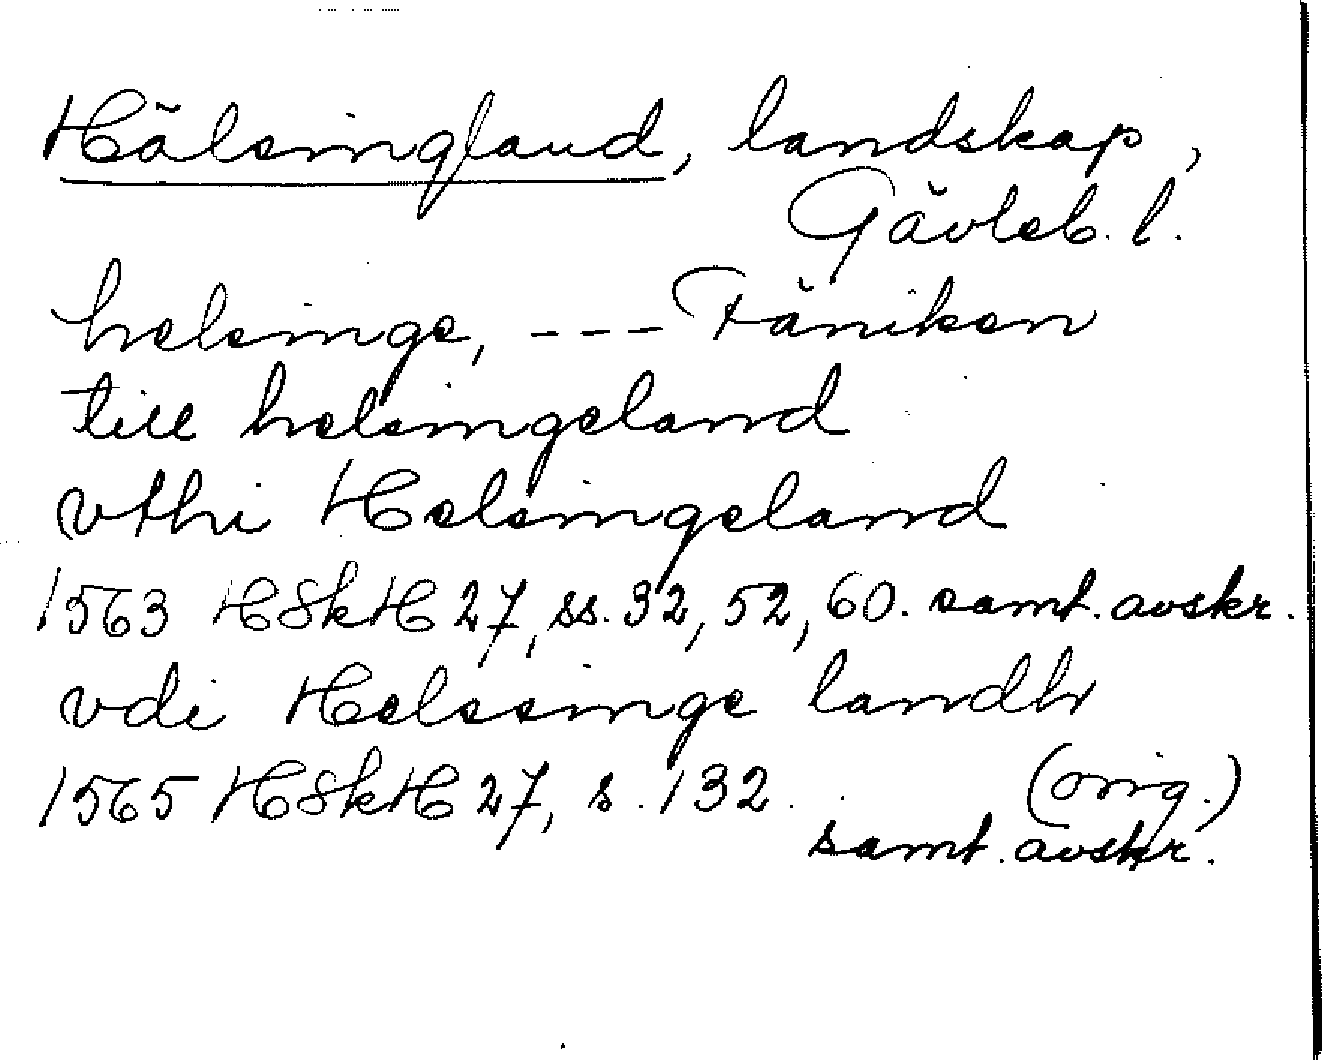 Hälsingland, landskap,
Gävleb. l.
helsinge, --- Fäniken
till helsingeland
vthi Helsingeland
1563 HSkH 27, ss. 32, 52, 60. samt. avskr.
vdi Helssinge landh
1565 HSkH 27, s. 132. (orig.)
samt. avskr.